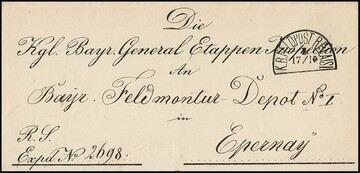 Die
Kgl. Bayr. General Etappen
An
Bayr. Feldmontur-Depot No. I
in
R.S.
Expd. No 2698.
Epernaÿ
17/10